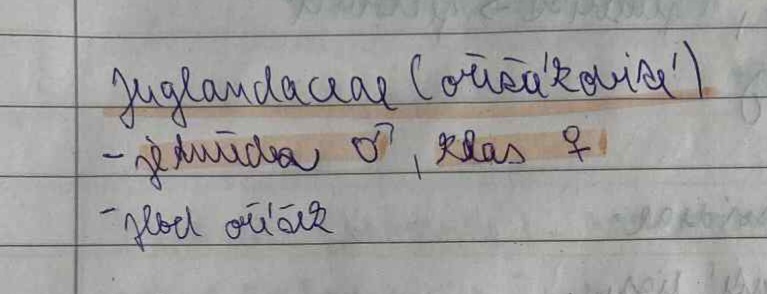 Juglandaceae (ořešákovité)
- jehněda ♂, klas ♀
- plod oříšek